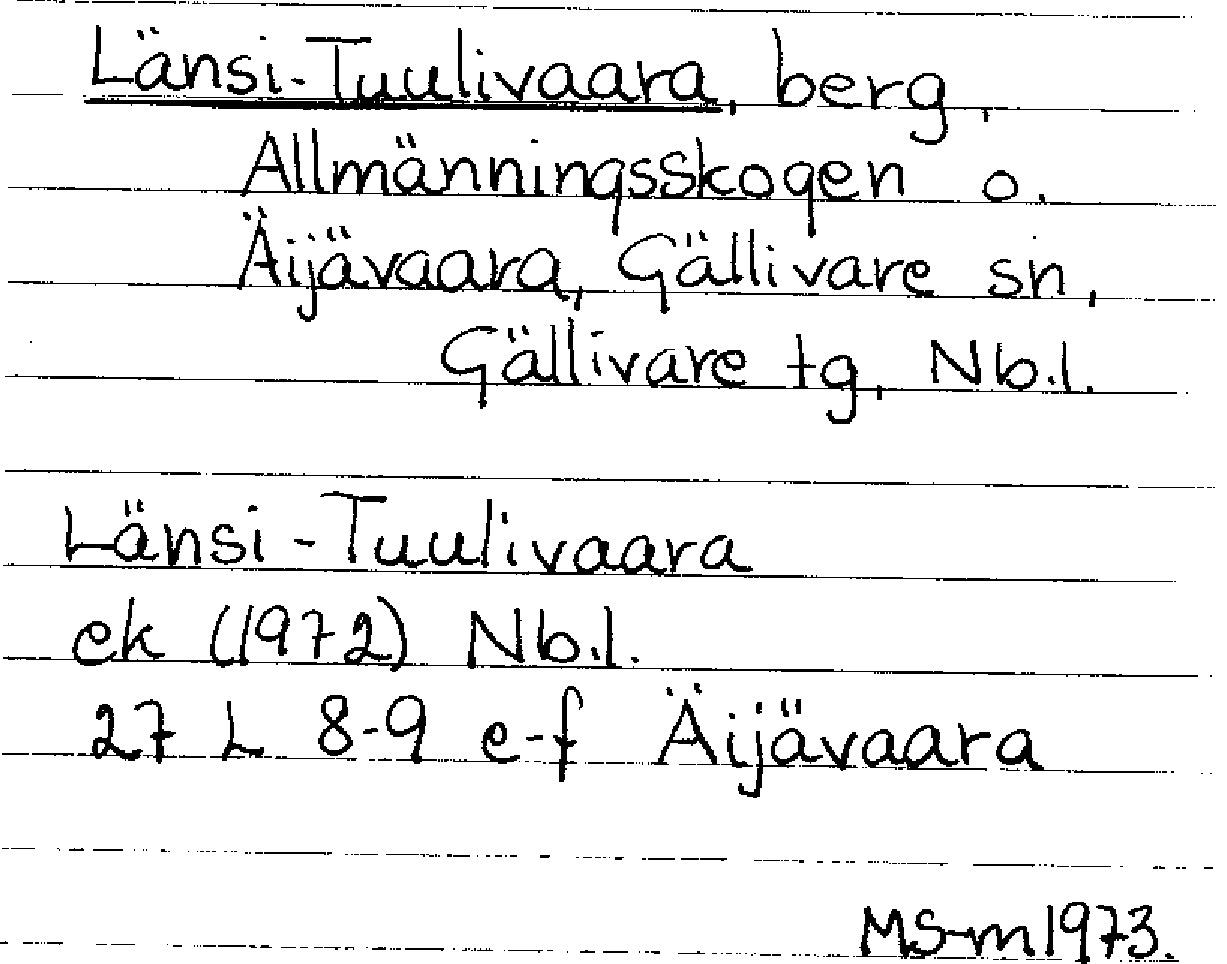 Länsi-Tuulivaara, berg,
Allmänningsskogen o.
Äijävaara, Gällivare sn,
Gällivare tg, Nb.l.
Länsi-Tuulivaara
ek (1972) Nb.l.
27 L 8-9 e-f Äijävaara
MS-m 1973.